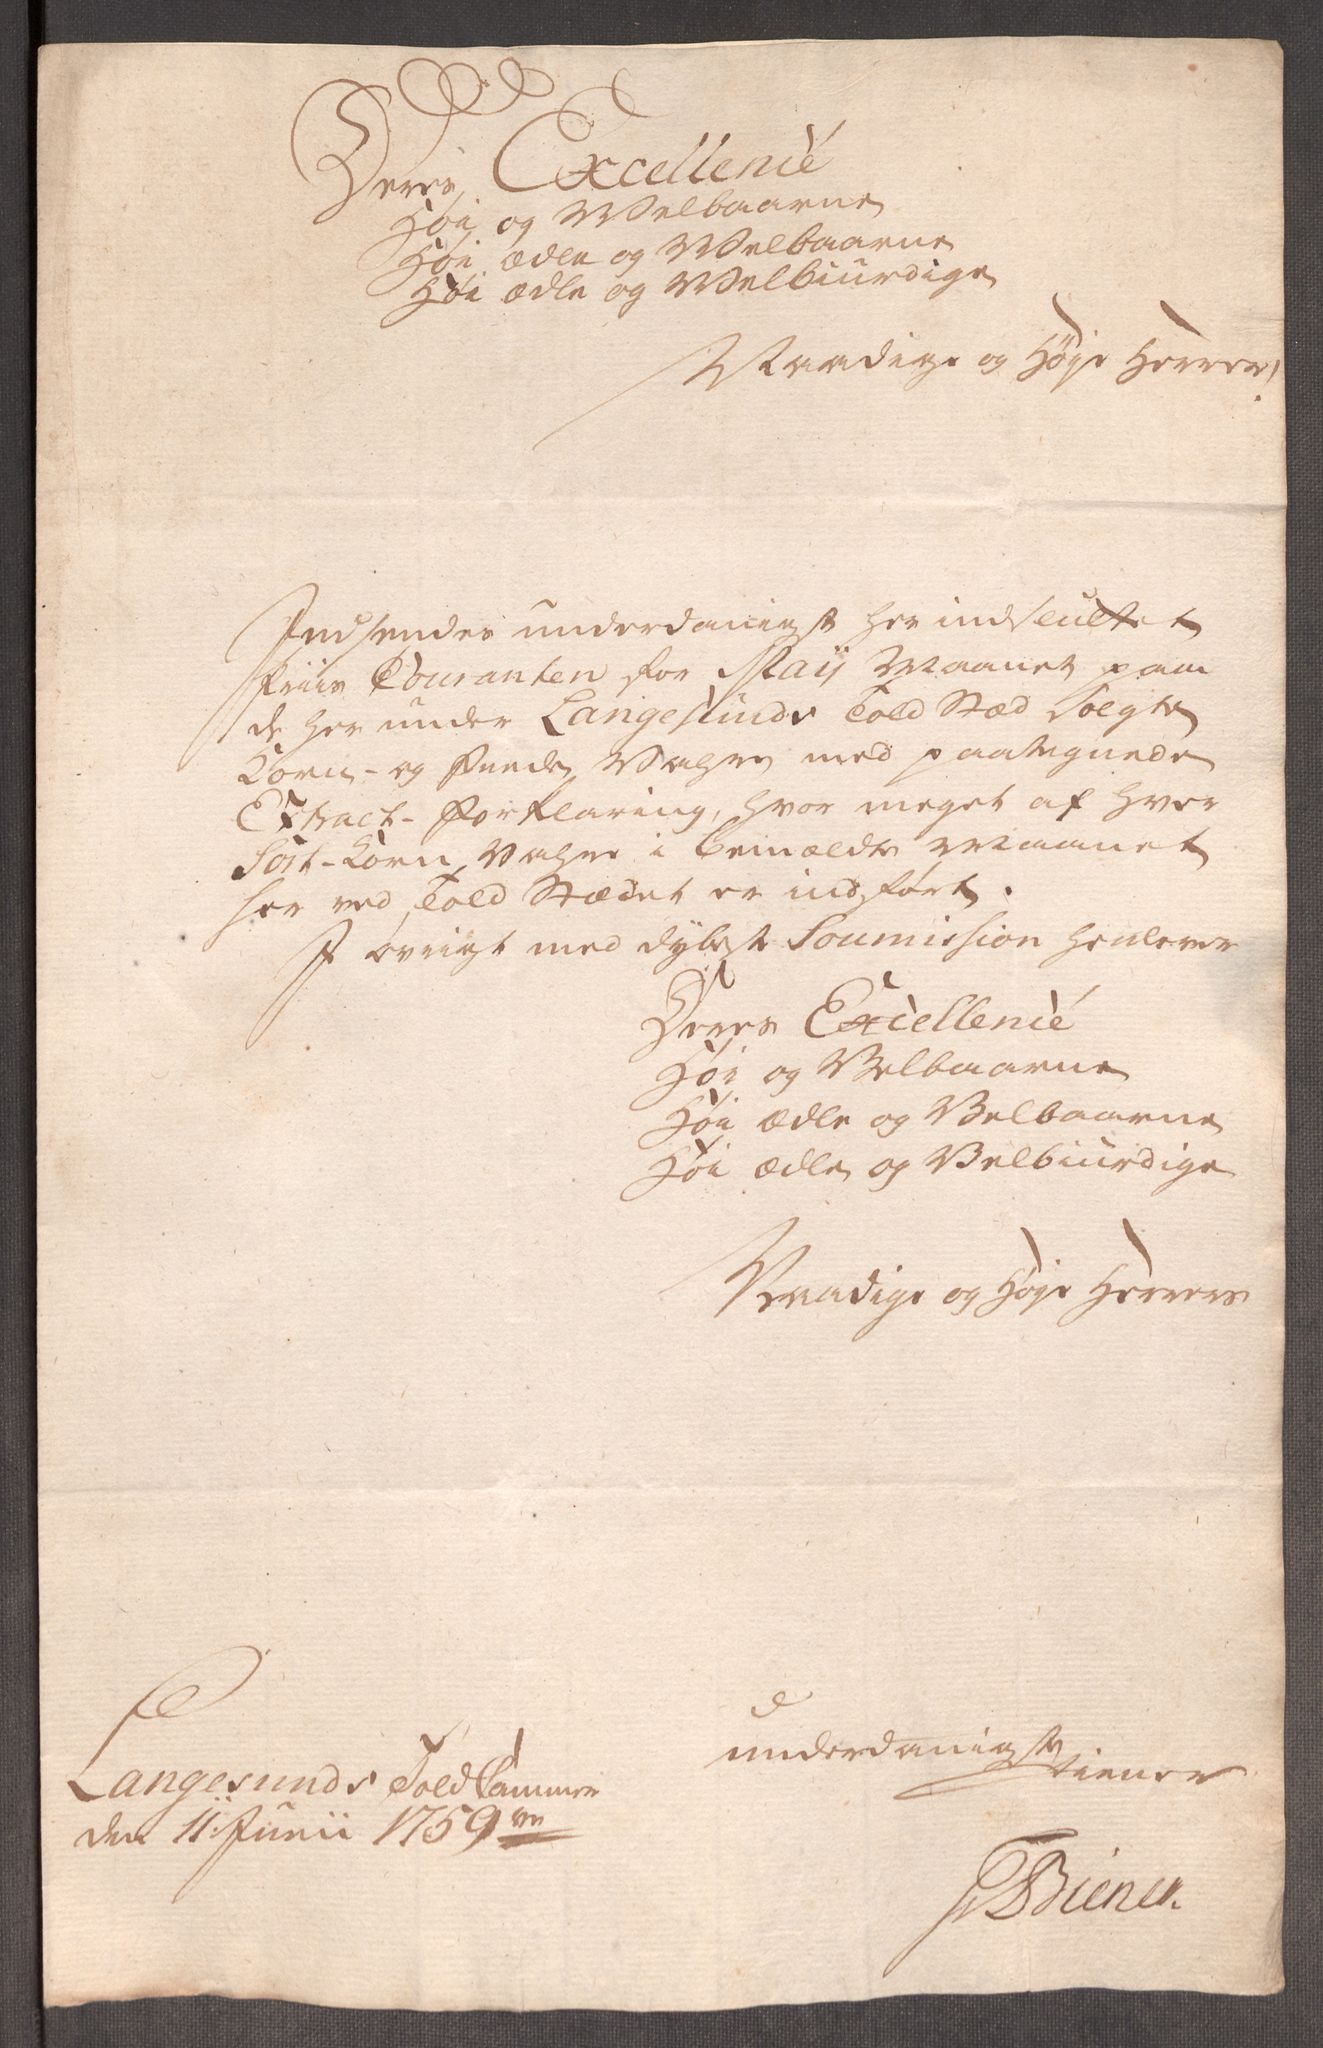 Deres Excellence
Høi og Welbaarne
Høi ædle og Welbaarne
Høi ædle og Welbiurdige
Naadige og Høje Herrer!
Indsendes underdanigst her indsluttet
Priis Couranten for Maij Maanet paa
de her under Langesunds Told Stæd Solgte
Korn- og Feede Vahre med paategnede
Extract-Forklaring, hvor meget af hver
Sort-Korn Vahre i bemældte Maanet
her ved Told Stædet er indført.
I øvrigt med dybeste Soumission henlever
Deres Excellence
Høi og Velbaarne
Høi ædle og Velbaarne
Høi ædle og Velbiurdige
Naadige og Høje Herrers
Langesunds Told Cammer
den 11 Junii 1759
underdanigste
tiener
Biener.